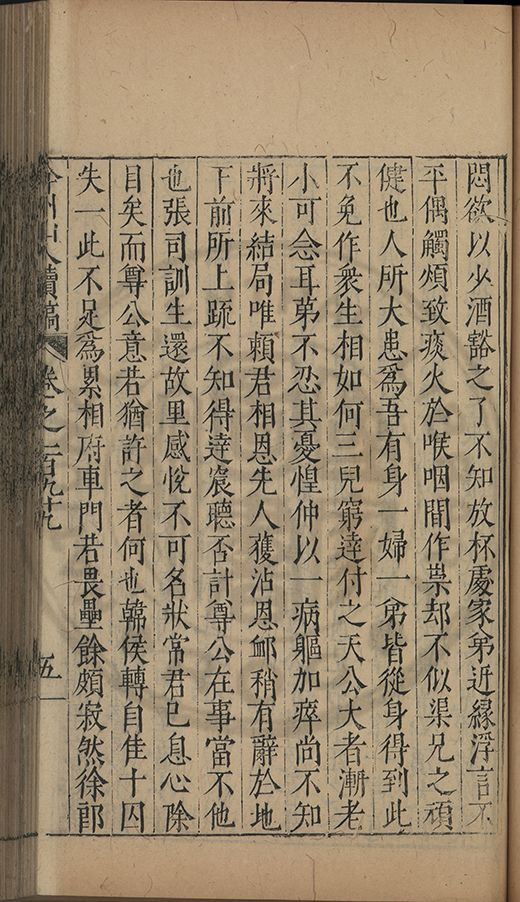 悶欲以少酒豁之了不知放杯處家弟近緣浮言不
平偶觸煩致痰火於喉咽間作祟却不似渠兄之頑
健也人所大患為吾有身一婦一弟皆從身得到此
不免作衆生相如何三兒窮達付之天公大者漸老
小可念耳弟不忍其憂惶仲以一病軀加瘁尚不知
將來結局唯頼君相恩先人獲沾恩卹稍有辭於地
下前所上疏不知得達宸聽否計尊公在事當不他
也張司訓生還故里感恱不可名狀常君已息心除
目矣而尊公意若猶許之者何也韓侯轉自佳十囚
失一此不足為累相府車門若畏壘餘頗寂然徐郎
弇州山人續稿 卷之一百九十九 五